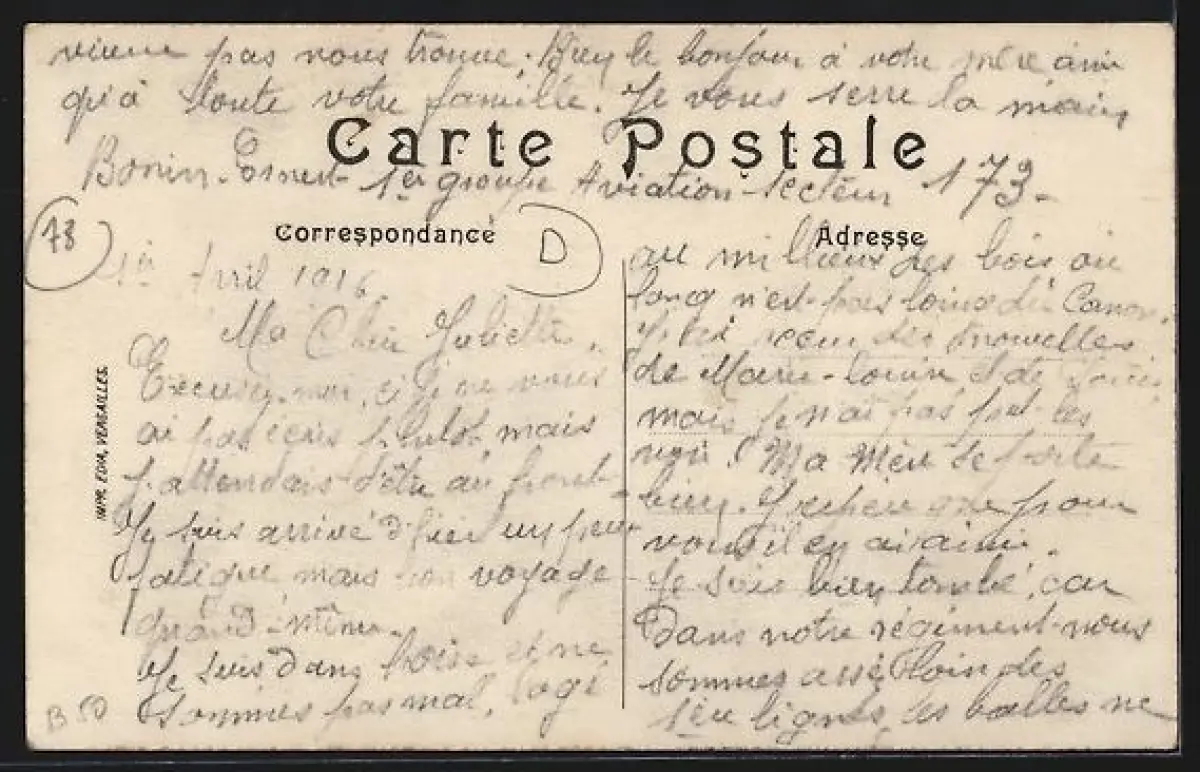 vienne pas nous trouve. Bien le bonjour à votre mère ainsi
qu'à toute votre famille. Je vous serre la main
Carte Postale
Bonin Ernest 1er groupe Aviation secteur 173-
Correspondance
D
78
1er Avril 1916
Ma Chèr Juliette,
Excusez-moi, si je ne vous
ai pas écris plutot, mais
j'attendais d'être au front
Je suis arrivé d'hier un peu
fatigué, mais bon voyage
quand-même.
Je suis dans et ne
sommes pas mal, logé
IMPR. EDIA, VERSAILLES.
B 50
Adresse
au millieux des bois où
lonq n'est pas loins du Canon.
J'ai reçu des nouvelles
de Marie-Louise et de
mais je n'ai pas put les
voir. Ma Mère se porte
bien. J'espère que pour
vous il en ai ainsi.
Je suis bien tombé, car
Dans notre régiment nous
sommes assé loin des
1ère lignes, les balles ne